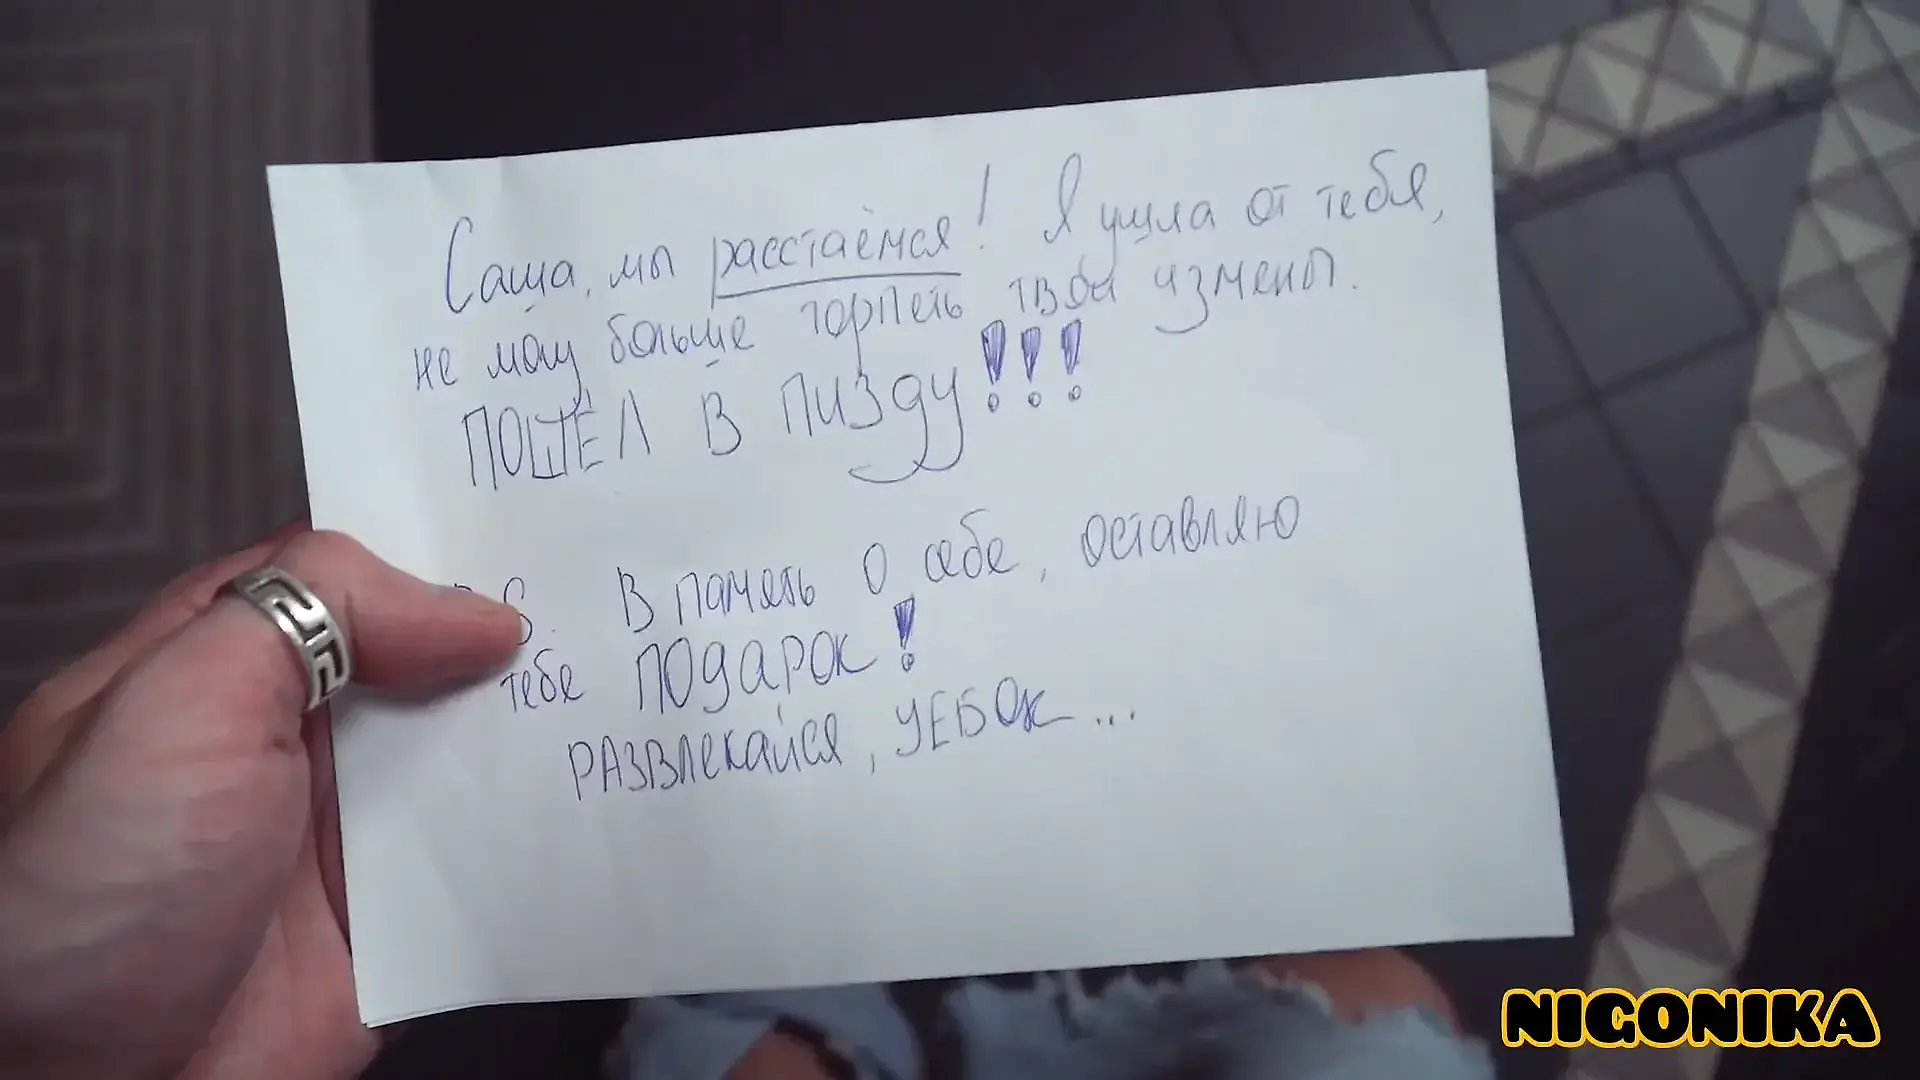 Саша, мы расстаёмся! Я ушла от тебя,
не могу больше терпеть твои измены.
ПОШЁЛ В ПИЗДУ!!!
S. В память о себе, оставляю
тебе ПОДАРОК!
РАЗВЛЕКАЙСЯ, УЕБОК...
NIGONIKA